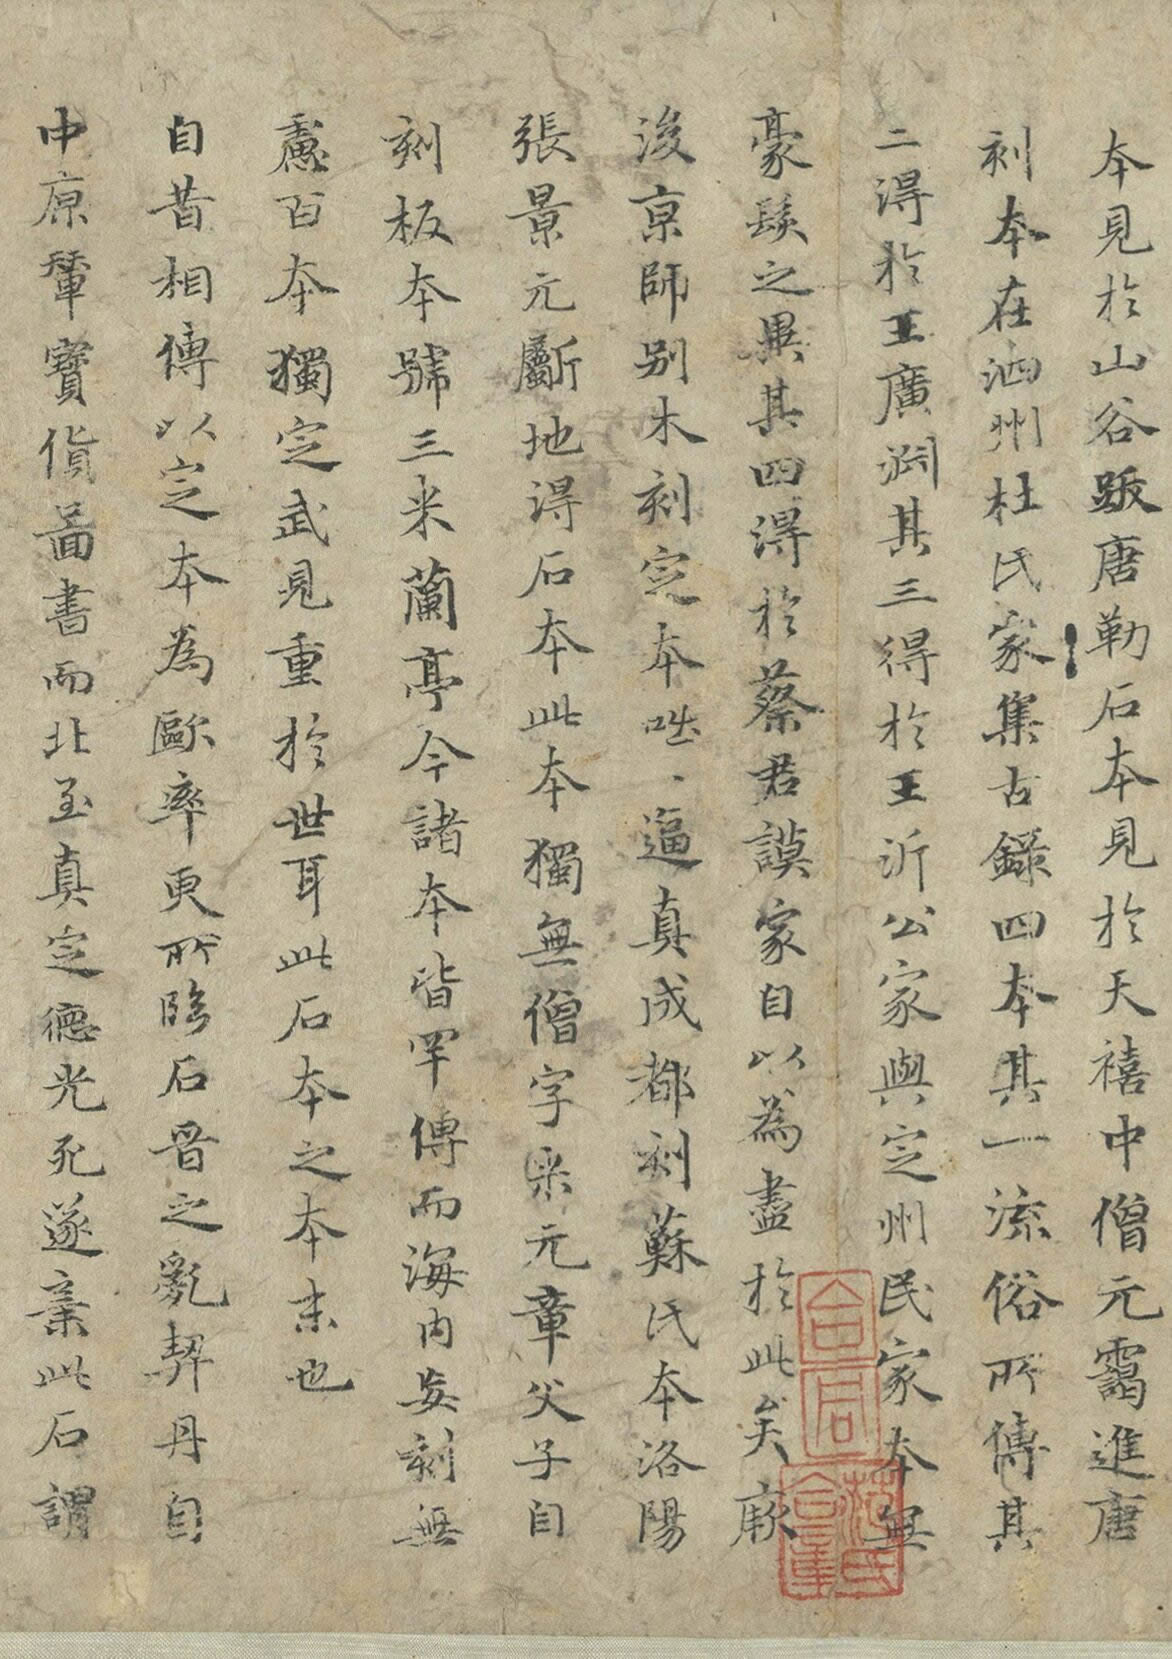 本見於山谷跋唐勒石本見於天禧中僧元靄進唐
刻本在泗州杜氏家集古錄四本其一流俗所傳其
二得於王廣淵其三得於王沂公家與定州民家本無
豪髮之異其四得於蔡君謨家自以為盡於此矣厥
後京師別木刻定本咄、逼真成都刻蘇氏本洛陽
張景元斸地得石本此本獨無僧字米元章父子自
刻板本號三米蘭亭今諸本皆罕傳而海內妄刻無
慮百本獨定武見重於世耳此石本之本末也
自昔相傳以定本為歐率更所臨石晉之亂契丹自
中原輦寶貨圖書而北至真定德光死遂棄此石謂
合同